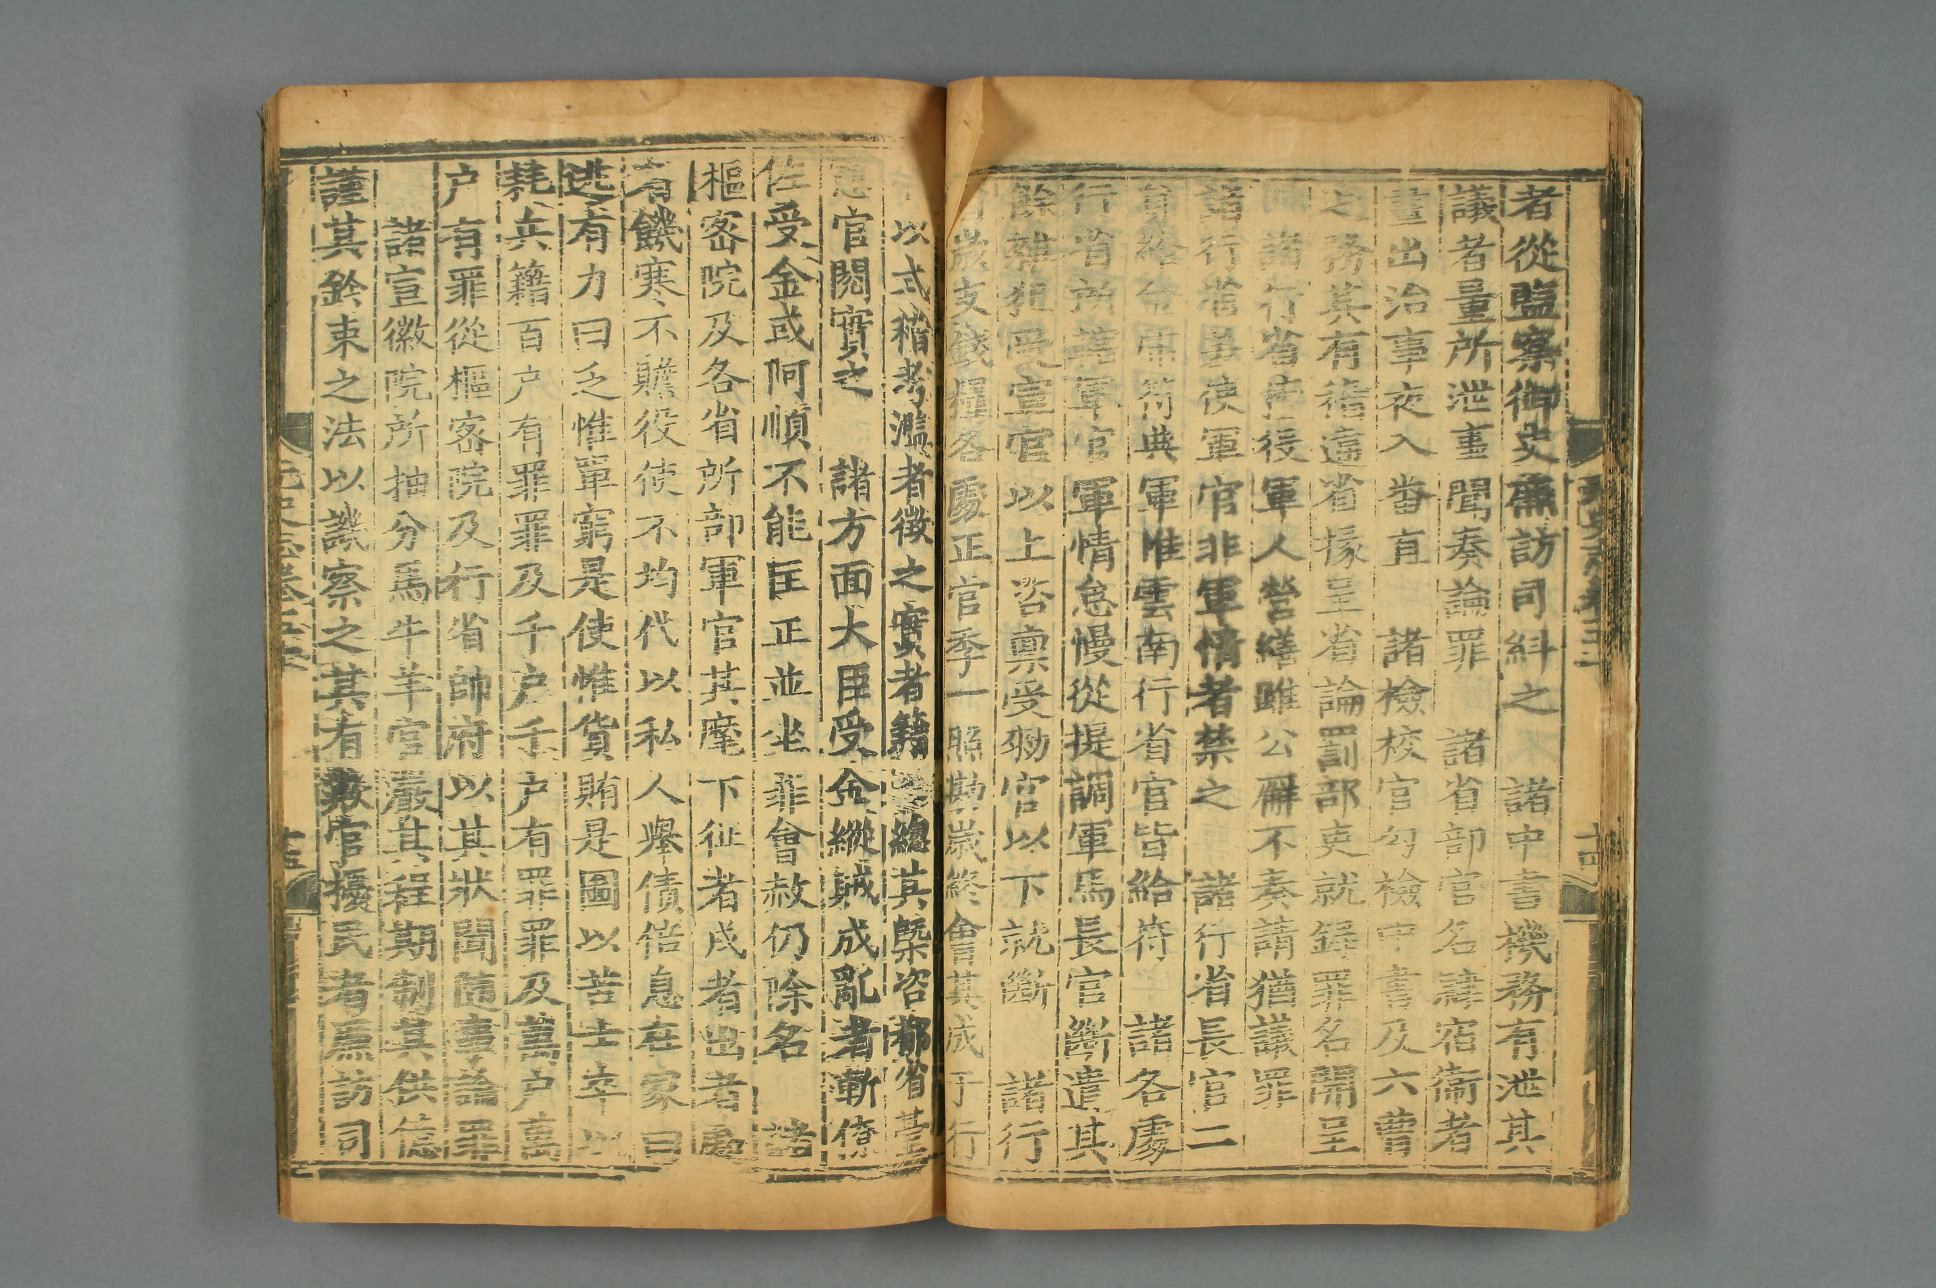 者從監察御史廉訪司糾之　諸中書機務有泄其
議者量所泄事聞奏論罪　諸省部官名諱宿衛者
晝出治事夜入番直　諸檢校官勾檢中書及六曹
之務其有稽違省掾呈省論罰部吏就錄罪名開呈
諸行省擅役軍人營繕雖公廨不奏請猶議罪
諸行省歲使軍官非軍情者禁之　諸行省長官二
員給金虎符典軍惟雲南行省官皆給符　諸各處
行省所轄軍官軍情怠慢從提調軍馬長官斷遣其
餘雜犯受宣官以上咨稟受勑官以下就斷　諸行
省歲支錢糧各處正官季一照勘歲終會其成于行
省以式稽考濫者徵之實者籍之總其槩咨都省臺
憲官閱實之　諸方面大臣受金縱賊成亂者斬僚
佐受金或阿順不能匡正並坐罪會赦仍除名　諸
樞密院及各省所部軍官其麾下征者戍者出者處
者有饑寒不贍役使不均代以私人舉債倍息在家曰
逃有力曰乏惟單窮是使惟貨賄是圖以苦士卒以
耗兵籍百户有罪罪及千户千户有罪罪及萬户萬
户有罪從樞密院及行省帥府以其狀聞隨事論罪
諸宣徽院所抽分馬牛羊官嚴其程期制其供億
謹其鈐束之法以譏察之其有欺官擾民者廉訪司
元史志卷五十
十四
元史志卷五十
十五